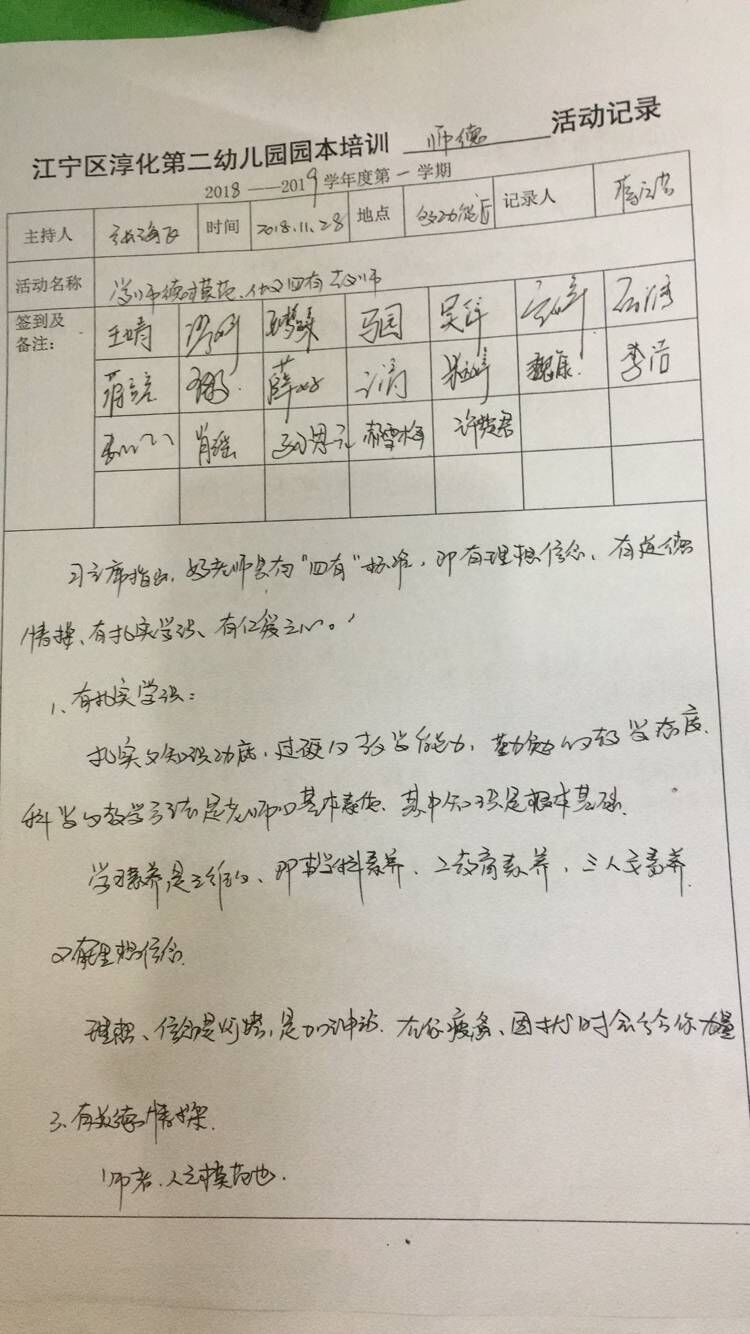 江宁区淳化第二幼儿园园本培训 师德 活动记录
2018——2019学年度第一学期
主持人 时间 2018.11.28 地点 多功能厅 记录人
活动名称 学师德模范、做四有教师
签到及 王婧 马园
备注：
薛 魏康 李洁
肖瑶 郝雪梅 许楚君
习主席指出，好老师具有"四有"标准，即有理想信念、有道德
情操、有扎实学识、有仁爱之心。
1、有扎实学识：
扎实的知识功底、过硬的教学能力，勤勉的教学态度、
科学的教学方法是老师的基本素质、其中知识是根本基础.
学习素养是三维的、即一学科素养、二教育素养，三人文素养.
2有理想信念.
理想、信念是灯塔，是加油站. 在你疲惫、困扰时会给你力量
3、有道德情操.
师者、人之模范也.